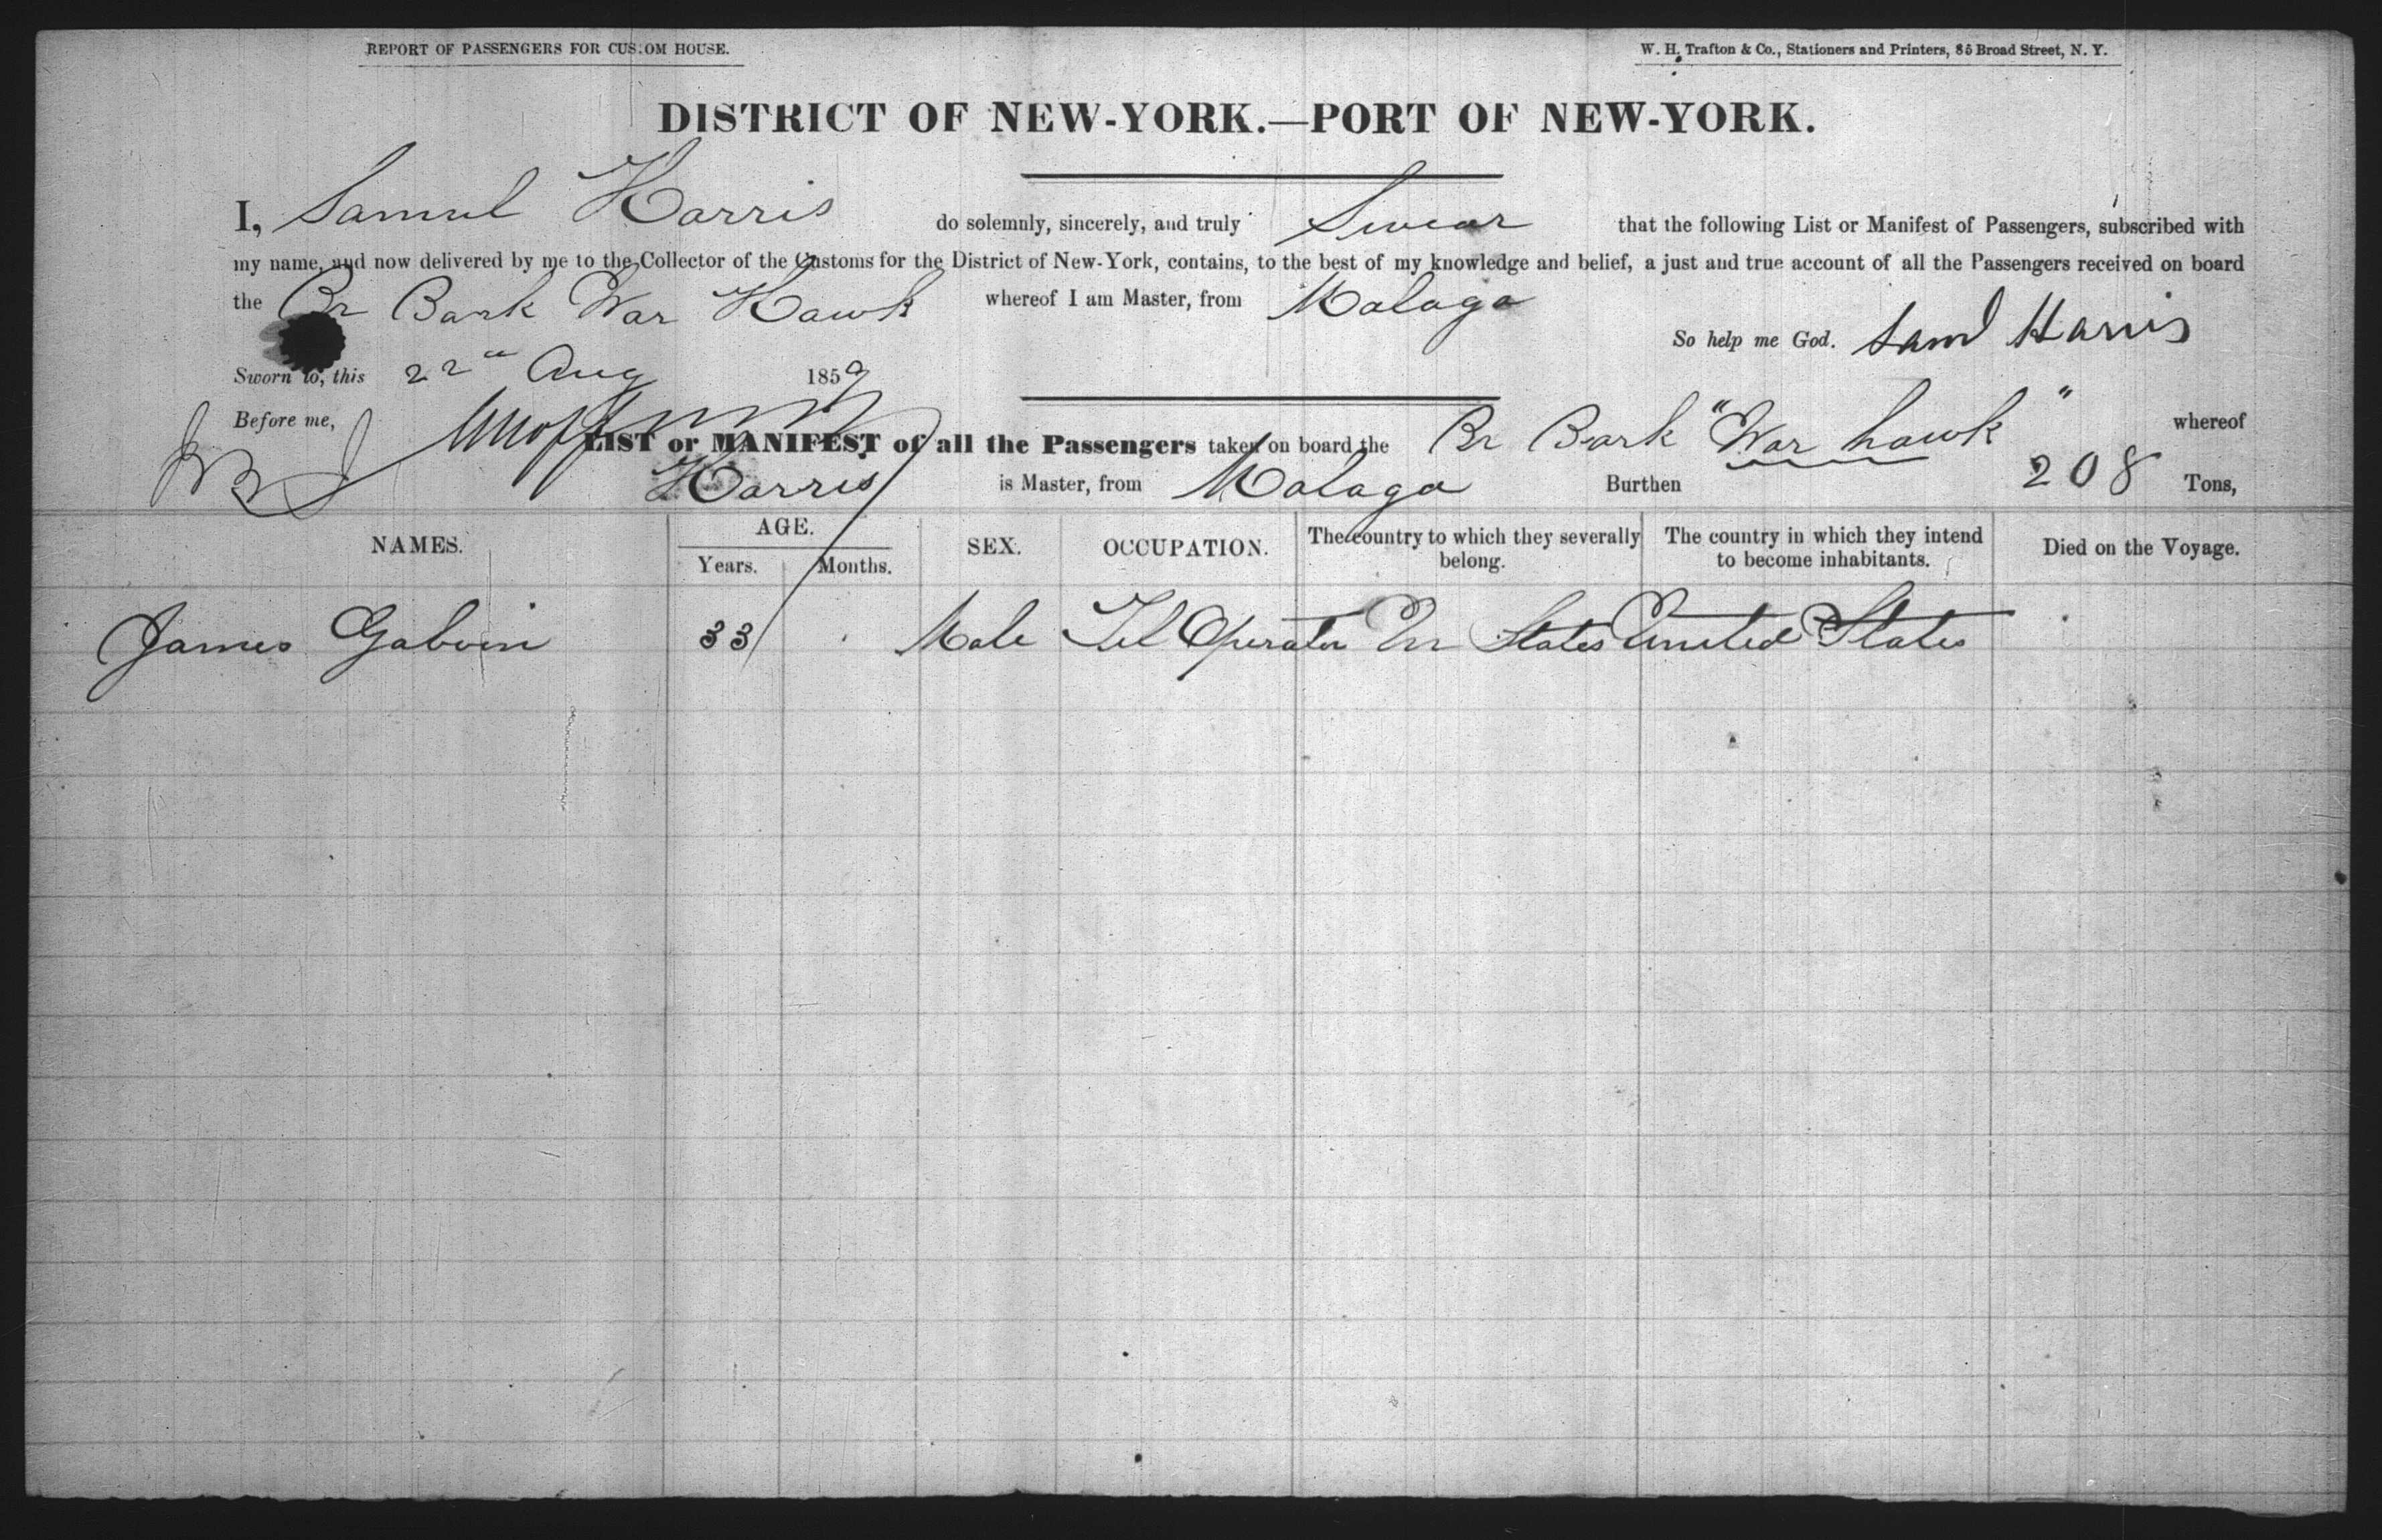 REPORT OF PASSENGERS FOR CUSTOM HOUSE.
W. H. Trafton & Co., Stationers and Printers, 85 Broad Street, N. Y.
DISTRICT OF NEW-YORK.—PORT OF NEW-YORK.
I, Samuel Harris do solemnly, sincerely, and truly Swear that the following List or Manifest of Passengers, subscribed with
my name, and now delivered by me to the Collector of the Customs for the District of New-York, contains, to the best of my knowledge and belief, a just and true account of all the Passengers received on board
the Br Bark War Hawk whereof I am Master, from Malaga
So help me God. Saml Harris
Sworn to, this 22nd Aug 1859
Before me,
LIST or MANIFEST of all the Passengers taken on board the Br Bark "War hawk" whereof
Harris is Master, from Malaga Burthen 208 Tons,
NAMES. AGE. Years. Months. SEX. OCCUPATION. The country to which they severally belong. The country in which they intend to become inhabitants. Died on the Voyage.
James Galvin 33 Male Tel Operator Un States United States